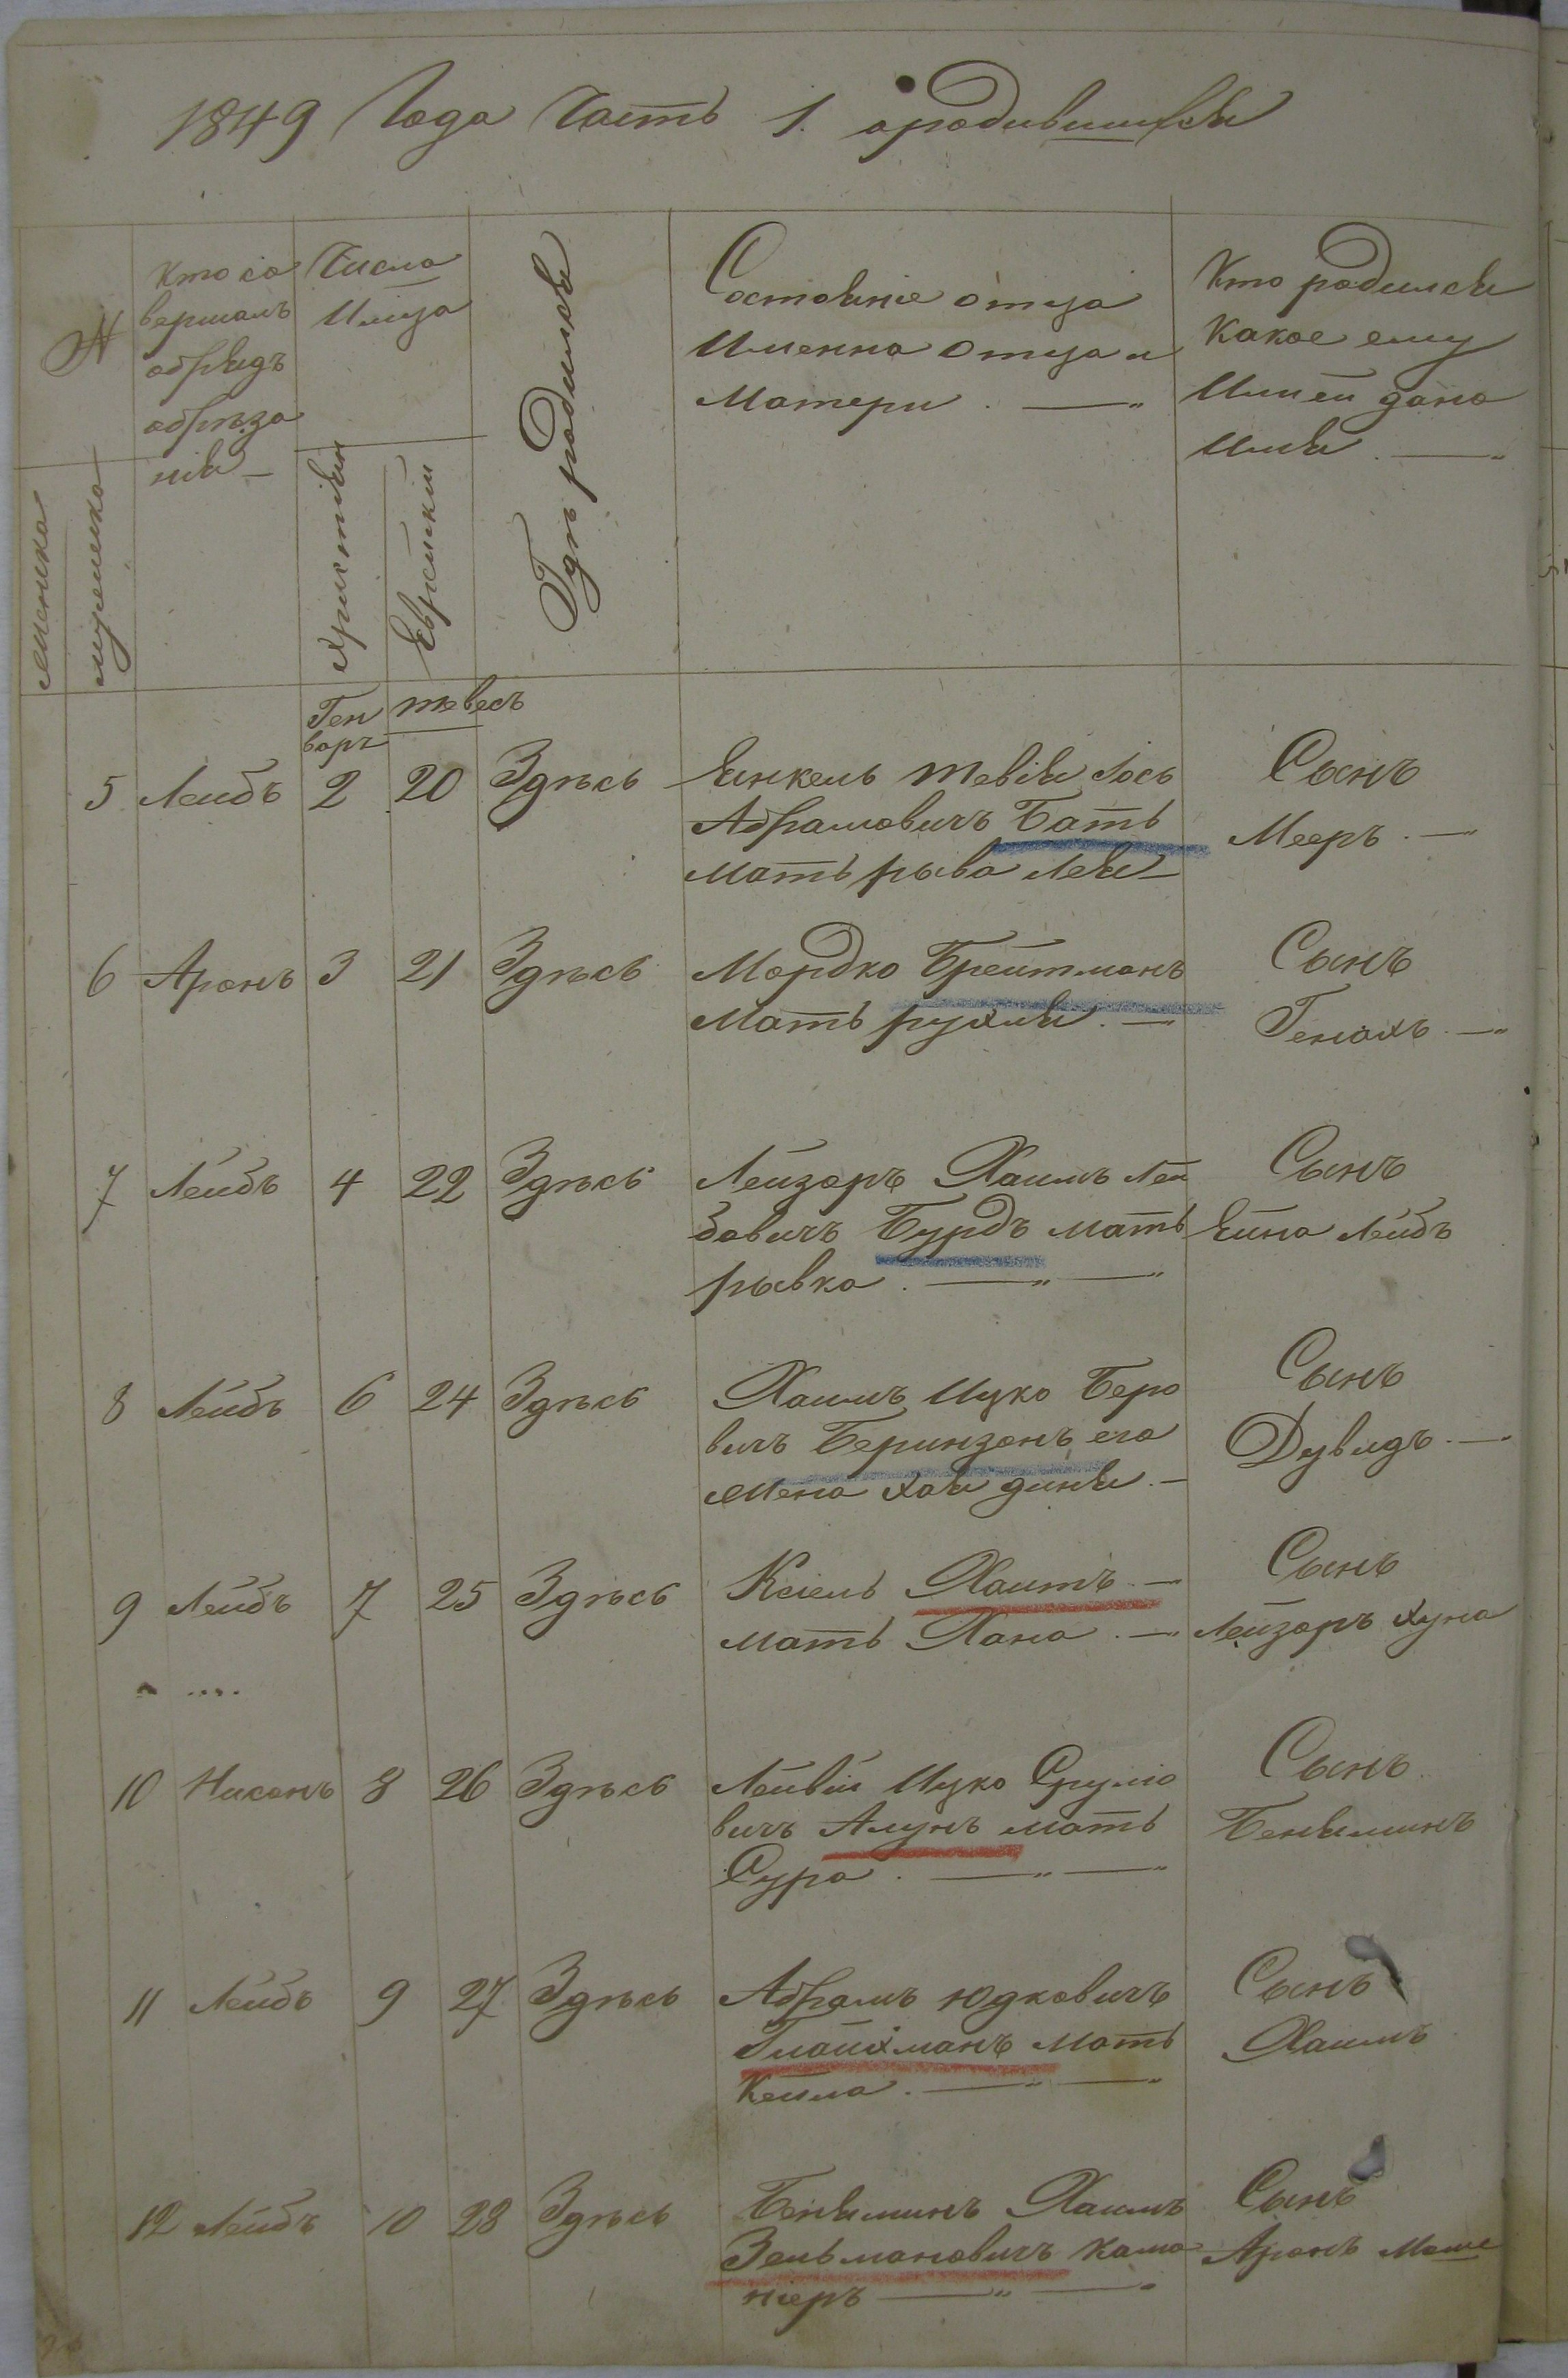 1849 Года Часть 1. ородившихся
№
женска
мужеска
Кто со
вершалъ
обрядъ
обреза
нія –
Число
И мѣца
Христіян
Еврѣйскій
Гдѣ родился
Состояніе отца
Именна отца и
Матери. —„
Кто родился
Какое ему
Или ей дано
Имя. —„
Ген
варъ
тевесъ
5 Лейбъ 2 20 Здѣсь
Янкель тевія Іось
Абрамовичъ Батъ
мать рыва лея –
Сынъ
Мееръ. —„
6 Аронъ 3 21 Здѣсь
Мордко Брейтманъ
Мать рухля. —„
Сынъ
Генахъ. —„
7 Лейбъ 4 22 Здѣсь
Лейзоръ Хаимъ Лей
бовичъ Бурдъ мать
рывка. —„—„
Сынъ
Еина Лейбъ
8 Лейбъ 6 24 Здѣсь
Хаимъ Ицко Беро
вичъ Беринзонъ его
жена хая диня. –
Сынъ
Дувидъ. —„
9 Лейбъ 7 25 Здѣсь
Ксіель Хаитъ. —
мать Хана. —„
Сынъ
Лейзоръ Хуна
10 Нисонъ 8 26 Здѣсь
Лейвій Ицко Сруліо
вичъ Алунъ мать
Сура. —„—„
Сынъ
Беняминъ
11 Лейбъ 9 27 Здѣсь
Абрамъ юдковичъ
Глайхманъ Мать
Кейла. —„—„
Сынъ
Хаимъ
12 Лейбъ 10 28 Здѣсь
Беняминъ Хаимъ
Зельмановичъ Камо
ніеръ —„—„
Сынъ
Аронъ Моше